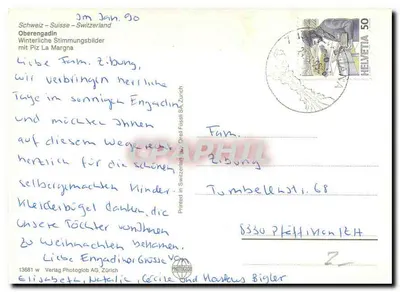 Im Jan. 90
Schweiz - Suisse - Switzerland
Oberengadin
Winterliche Stimmungsbilder
mit Piz La Margna
Liebe Fam. Zibung,
wir verbringen herrliche
Tage im sonnigen Engadin
und möchten Ihnen
auf diesem Wege
herzlich für die schönen,
selbergemachten Kinder-
Kleiderbügel danken, die
unsere Töchter von Ihnen
zu Weihnachten bekamen.
Liebe Engadiner Grüsse von
Elisabeth, Natalie, Cécile und Bigler
13661 w Verlag Photoglob AG, Zürich
Printed in Switzerland by Orell Füssli AG, Zürich
HELVETIA 50
Fam.
Zibung
68
8330 Pfäffikon ZH